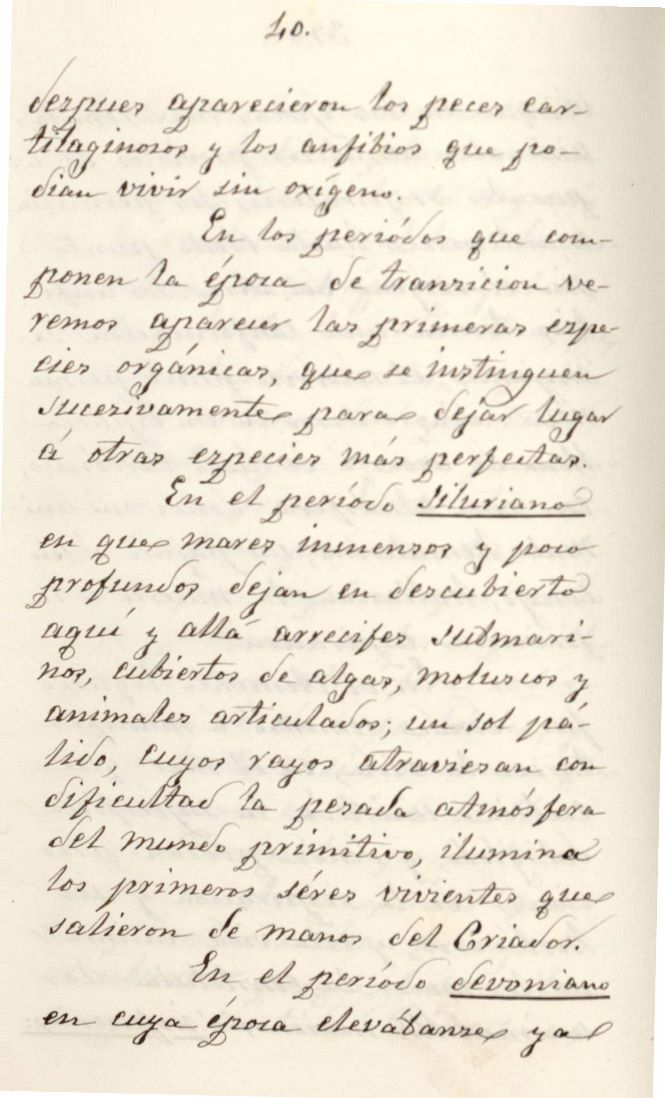 40.
despues aparecieron los peces car-
tilaginosos y los anfibios que po-
dian vivir sin oxígeno.
En los periódos que com-
ponen la época de transicion ve-
remos aparecer las primeras espe-
cies orgánicas, que se instinguen
sucesivamente para dejar lugar
á otras especies más perfectas.
En el período siluriano
en que mares inmensos y poco
profundos dejan en descubierto
aquí y allá arrecifes submari-
nos, cubiertos de algas, moluscos y
animales articulados; un sol pá-
lido, cuyos rayos atraviesan con
dificultad la pesada atmósfera
del mundo primitivo, ilumina
los primeros séres vivientes que
salieron de manos del Criador.
En el período devoniano
en cuya época elevábanse ya